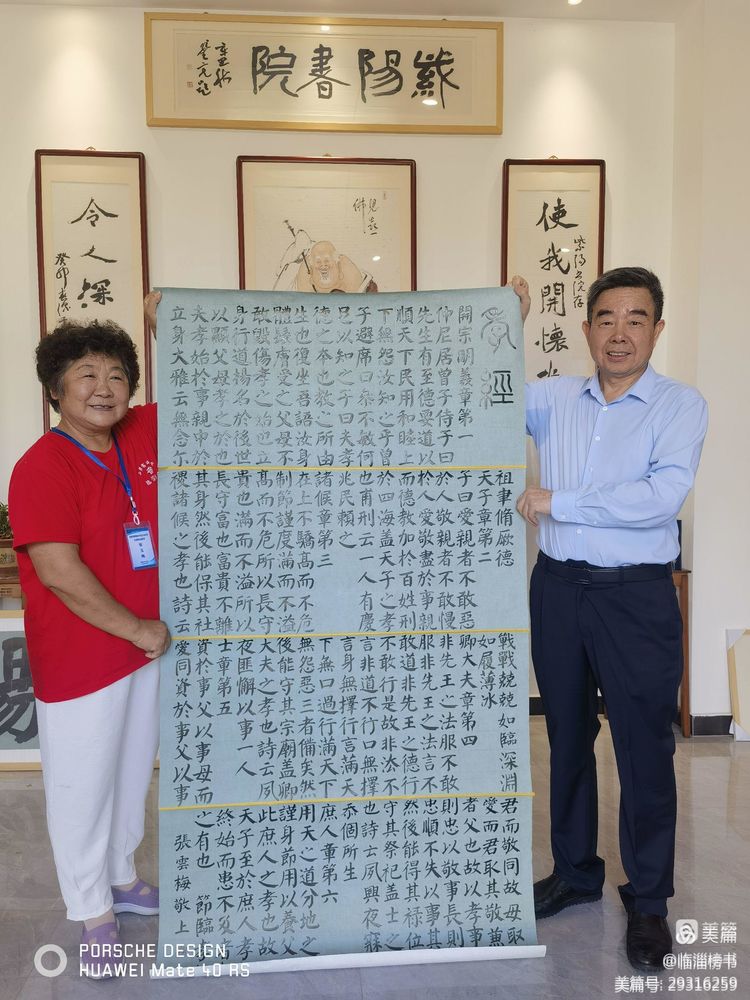 紫陽書院
辛丑秋
令人深
癸卯
兒孫一
佛
使我開懷
紫陽書院存
孝經
開宗明義章第一
仲尼居曾子侍子曰
先生有至德要道以
順天下民用和睦上
下無怨汝知之乎曾
子避席曰參不敏何
足以知之子曰夫孝
德之本也教之所由
生也復坐吾語汝身
體髮膚受之父母不
敢毀傷孝之始也立
身行道揚名於後世
以顯父母孝之終也
夫孝始於事親中於
立身大雅云無念尔
祖聿脩厥德
天子章第二
子曰愛親者不敢惡
於人敬親者不敢慢
於人愛敬盡於事親
而德教加於百姓刑
於四海蓋天子之孝
也甫刑云一人有慶
兆民賴之
諸候章第三
在上不驕高而不危
制節謹度滿而不溢
高而不危所以長守
貴也滿而不溢所以
長守富也富貴不離
其身然後能保其社
稷諸候之孝也詩云
戰戰兢兢如臨深淵
如履薄冰
卿大夫章第四
非先王之法服不敢
服非先王之法言不
敢道非先王之德行
不敢行是故非法不
言非道不行口無擇
言身無擇行言滿天
下無口過行滿天下
無怨惡三者備矣然
後能守其宗廟蓋卿
大夫之孝也詩云夙
夜匪懈以事一人
士章第五
資於事父以事母而
愛同資於事父以事
君而敬同故母取
愛而君取其敬兼
者父也故以孝事
則忠以敬事長則
忠順不失以事其
然後能得其祿位
守其祭祀蓋士之
也詩云夙興夜寐
忝個所生
庶人章第六
用天之道分地之
謹身節用以養父
此庶人之孝也故
天子至於庶人孝
終始而患不及者
之有也 節臨
張雲梅敬上
PORSCHE DESIGN
HUAWEI Mate 40 RS
美篇
@临淄榜书
美篇号: 29316259